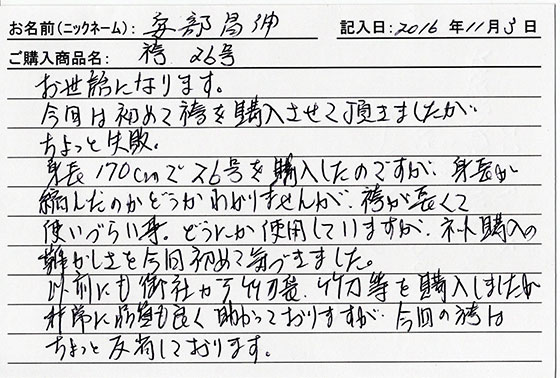 お名前(ニックネーム): 安部昌伸 記入日: 2016 年 11 月 3 日
ご購入商品名: 袴 26号
お世話になります。
今回は初めて袴を購入させて頂きましたが
ちょっと失敗。
身長170cmで26号を購入したのですが、身長が
縮んだのかどうかわかりませんが、袴が長くて
使いづらい事。どうにか使用していますが、ネット購入の
難かしさを今回初めて気づきました。
以前にも御社から竹刀、竹刀等を購入しましたが
非常に品質も良く助かっておりますが、今回の袴は
ちょっと反省しております。